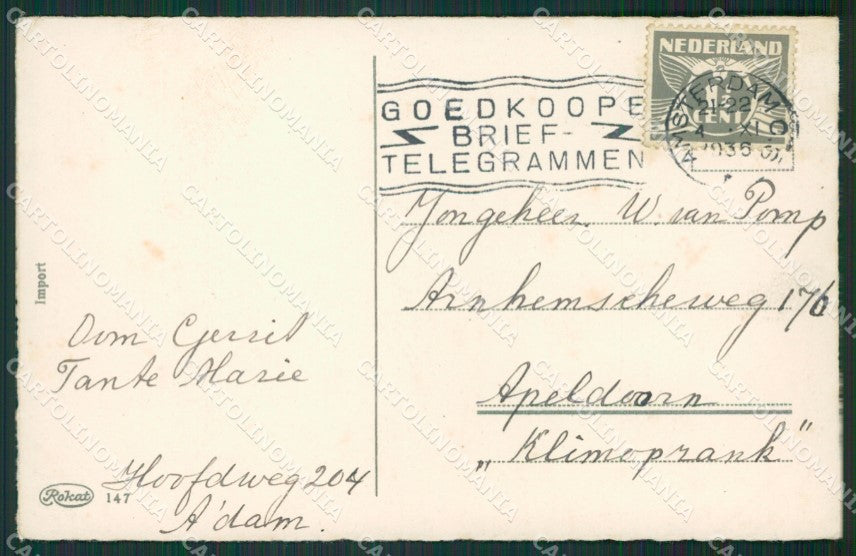 NEDERLAND
CENT
AMSTERDAM C.
21-22
4 XI
1936
GOEDKOOPE
BRIEF-
TELEGRAMMEN
Jongeheer. W. van Pomp
Arnhemscheweg 176
Apeldoorn
„Klimoprank"
Import
Oom Gerrit
Tante Marie
Hoofdweg 204
A'dam.
Rokat
147
CARTOLINOMANIA